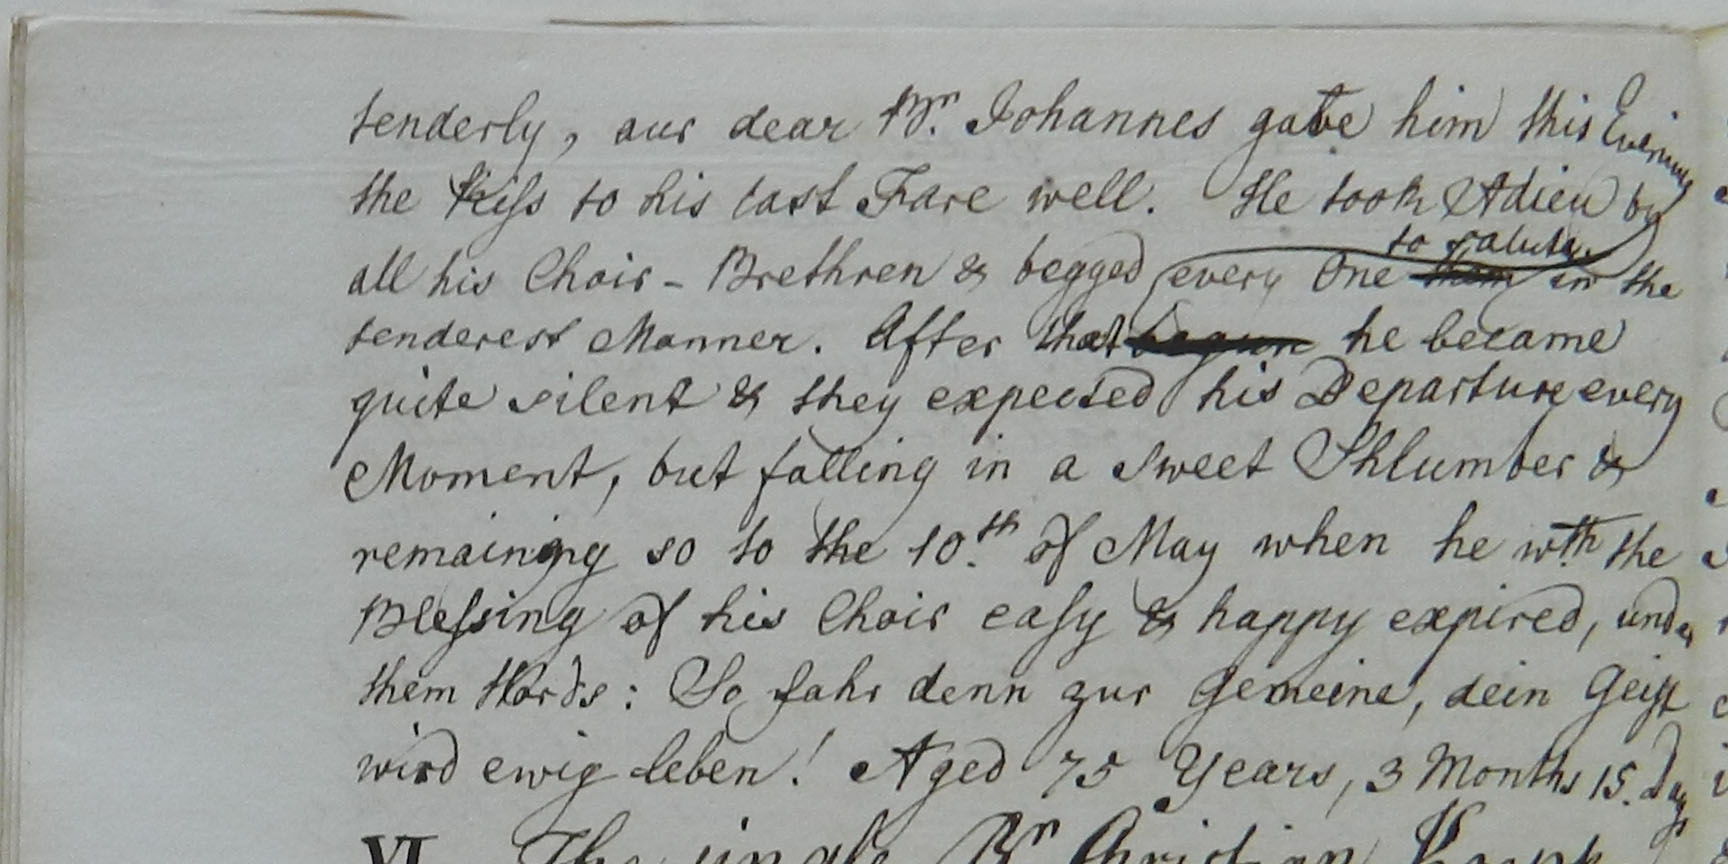 tenderly, aur dear Br. Johannes gave him this Evening
the kiss to his last Fare well. He took Adieu by
all his Choir-Brethren & begged every One to salute in the
tenderest Manner. After that begun he became
quite silent & they expected his Departure every
Moment, but falling in a sweet Shlumber &
remaining so to the 10.th of May when he wth. the
Blessing of his Choir easy & happy expired, under
them Words: So fahr denn zur Gemeine, dein Geist
wird ewig leben! Aged 75 Years, 3 Months 15. days
VI. The single Br Christian